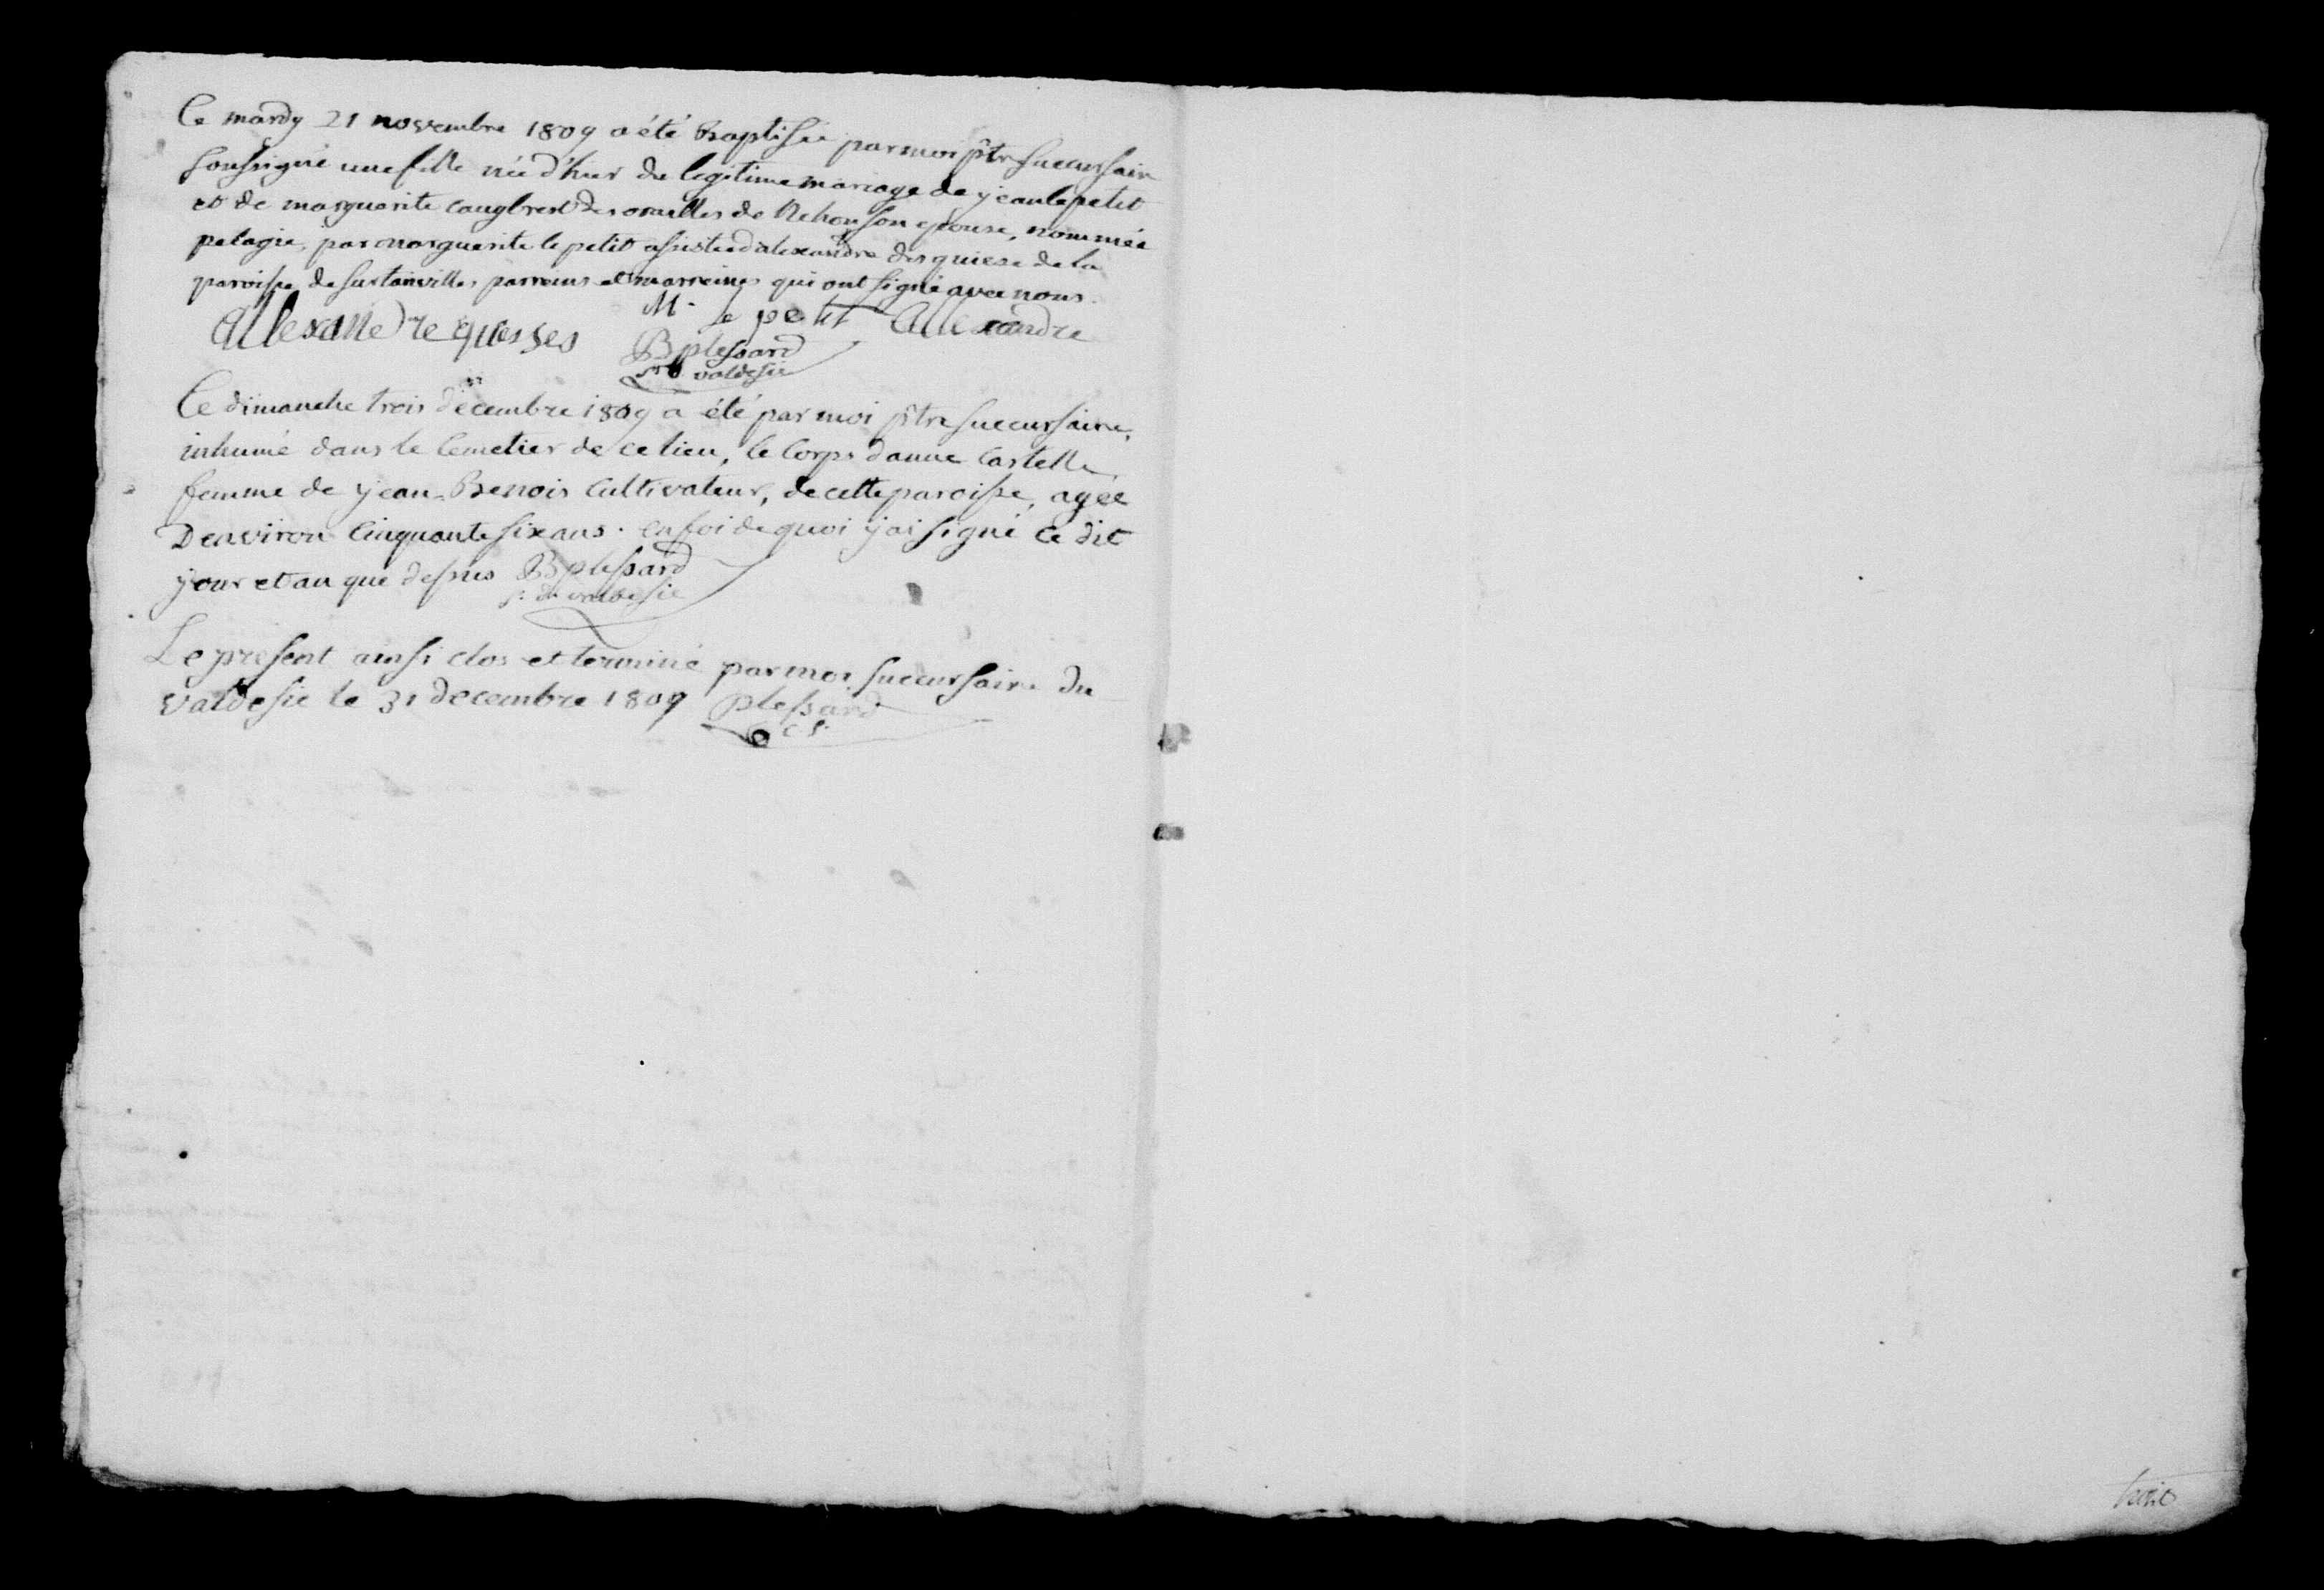 Ce mardy 21 novembre 1809 a été Baptisée par moi ptre succursaire
soussigné une fille née d'hier du legitime mariage de yean le petit
et de marguerite de Nehou son epouse, nommée
pelagie, par marguerite le petit assistée d'alexandre des quiese de la
paroisse de surtainville, parreins et marreines qui ont signé avec nous.
Allexandre quesses M. le petit Allexandre
B plessard
valdesie
Ce dimanche trois décembre 1809 a été par moi ptre succursaire,
inhumé dans le Cemetier de ce lieu, le Corps d'anne Castelle
femme de yean Benois Cultivateur, de cette paroisse, agée
D'environ Cinquante six ans. en foi de quoi j'ai signé ce dit
your et an que dessus B plessard
s. du valdesie
Le present ainsi clos et terminé par moi succursaire du
valdesie le 31 decembre 1809 plessard